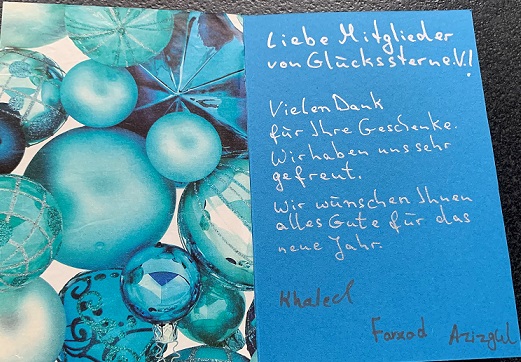 Liebe Mitglieder
von Glückssterne e.V.!
Vielen Dank
für Ihre Geschenke.
Wir haben uns sehr
gefreut.
Wir wünschen Ihnen
alles Gute für das
neue Jahr.
Khaled
Farxad Azizgul